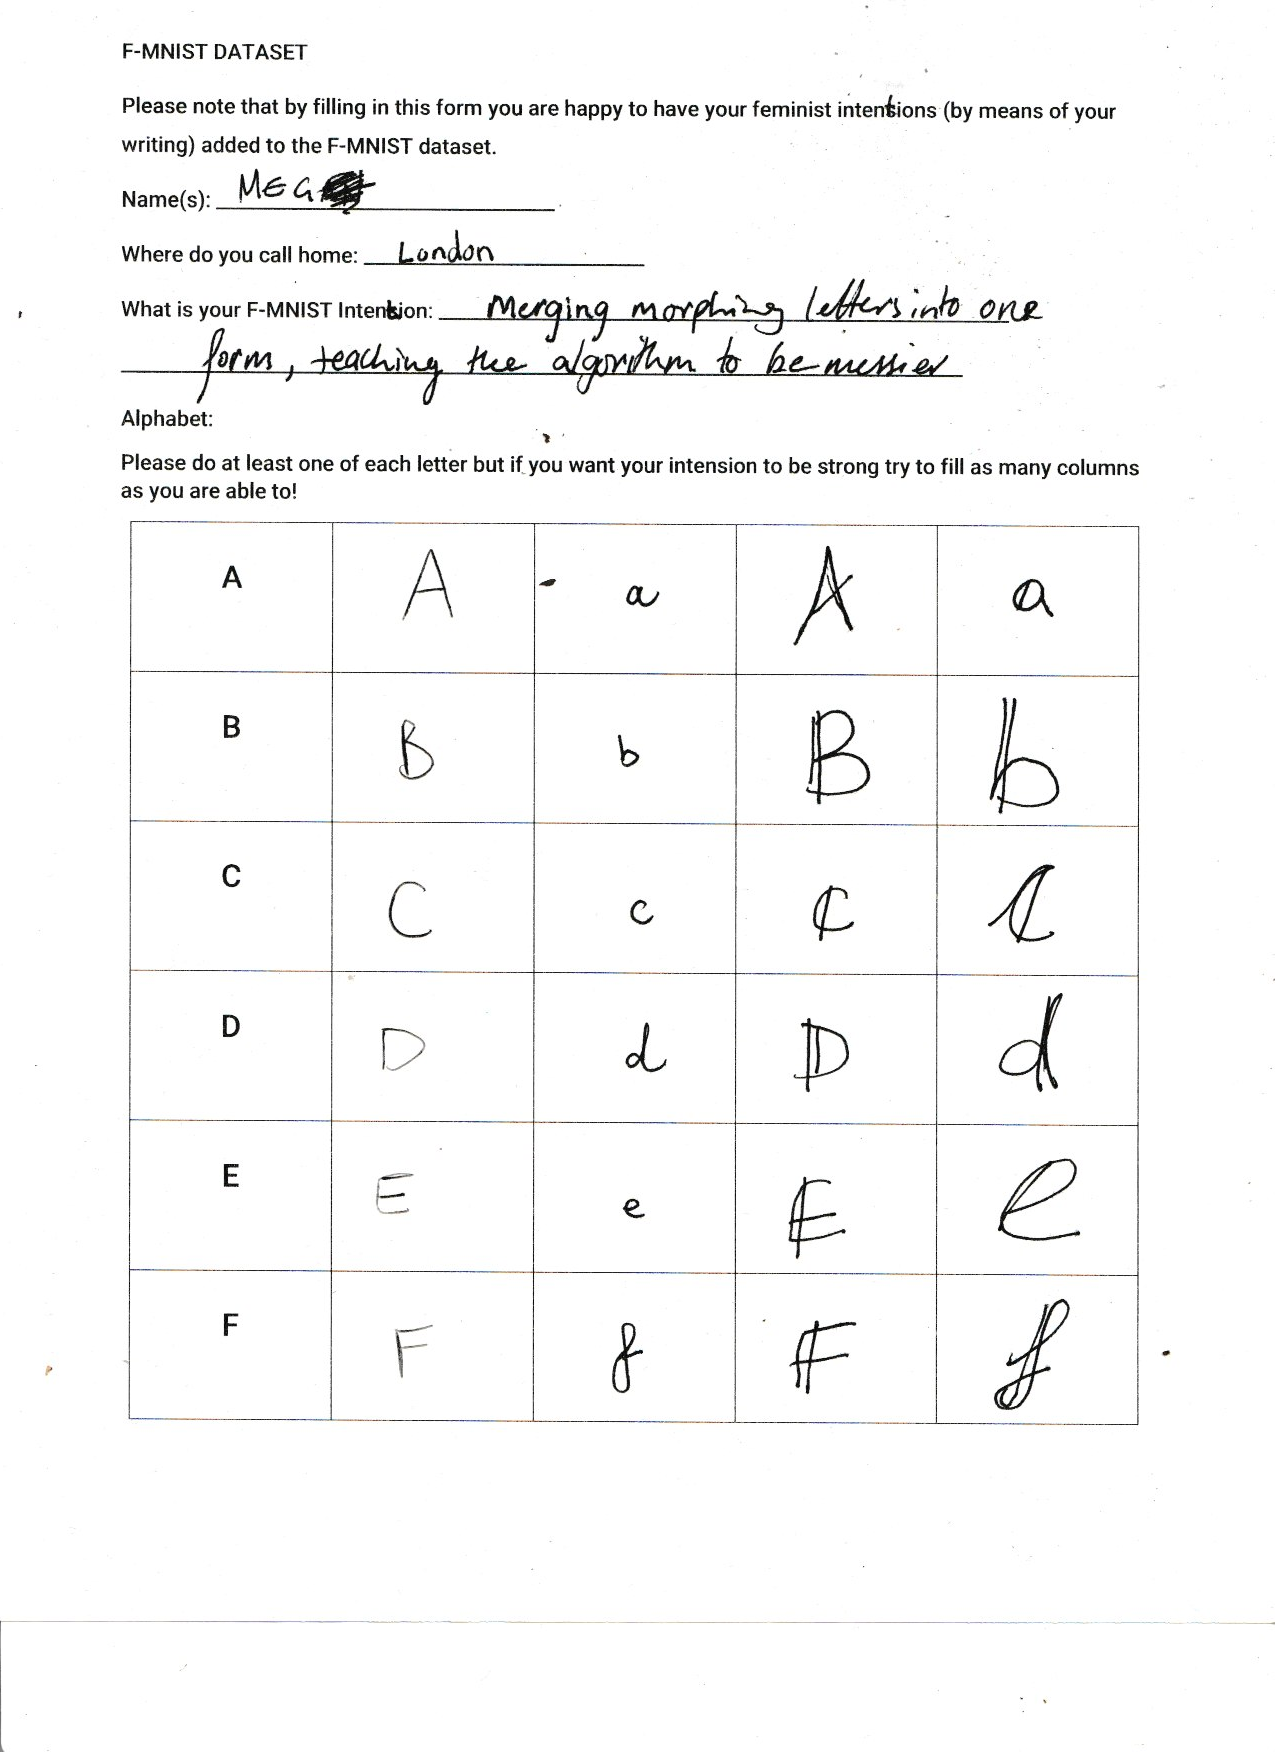 F-MNIST DATASET
Please note that by filling in this form you are happy to have your feminist intentions (by means of your
writing) added to the F-MNIST dataset.
Name(s): MEG
Where do you call home: London
What is your F-MNIST Intention: Merging morphing letters into one
form, teaching the algorithm to be messier
Alphabet:
Please do at least one of each letter but if you want your intension to be strong try to fill as many columns
as you are able to!
A A a A a
B B b B b
C C c C c
D D d D d
E E e E e
F F f F f